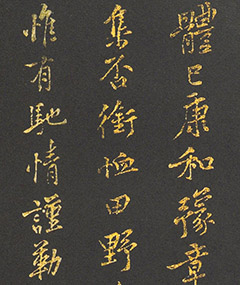 體已康和豫章
集否銜恤田野
惟有馳情謹勒